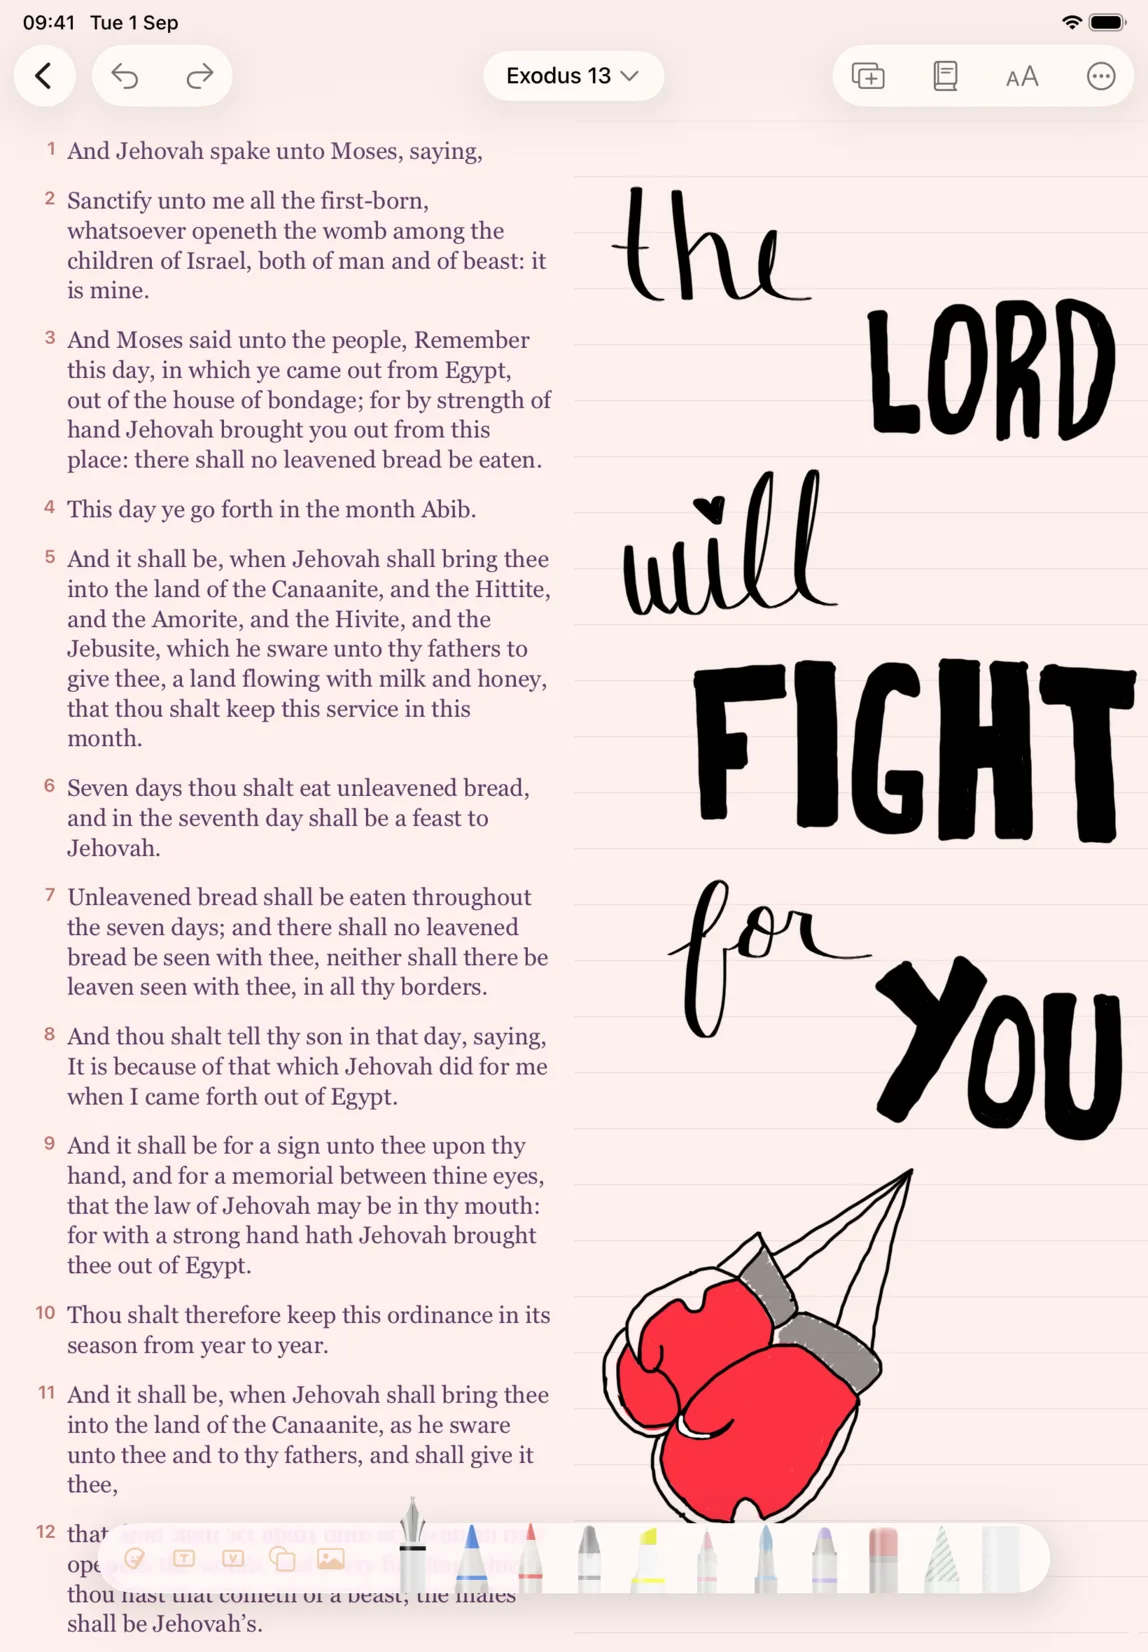 09:41 Tue 1 Sep
Exodus 13
AA
1 And Jehovah spake unto Moses, saying,
2 Sanctify unto me all the first-born,
whatsoever openeth the womb among the
children of Israel, both of man and of beast: it
is mine.
3 And Moses said unto the people, Remember
this day, in which ye came out from Egypt,
out of the house of bondage; for by strength of
hand Jehovah brought you out from this
place: there shall no leavened bread be eaten.
4 This day ye go forth in the month Abib.
5 And it shall be, when Jehovah shall bring thee
into the land of the Canaanite, and the Hittite,
and the Amorite, and the Hivite, and the
Jebusite, which he sware unto thy fathers to
give thee, a land flowing with milk and honey,
that thou shalt keep this service in this
month.
6 Seven days thou shalt eat unleavened bread,
and in the seventh day shall be a feast to
Jehovah.
7 Unleavened bread shall be eaten throughout
the seven days; and there shall no leavened
bread be seen with thee, neither shall there be
leaven seen with thee, in all thy borders.
8 And thou shalt tell thy son in that day, saying,
It is because of that which Jehovah did for me
when I came forth out of Egypt.
9 And it shall be for a sign unto thee upon thy
hand, and for a memorial between thine eyes,
that the law of Jehovah may be in thy mouth:
for with a strong hand hath Jehovah brought
thee out of Egypt.
10 Thou shalt therefore keep this ordinance in its
season from year to year.
11 And it shall be, when Jehovah shall bring thee
into the land of the Canaanite, as he sware
unto thee and to thy fathers, and shall give it
thee,
12 that
thou hast that cometh of a beast; the males
shall be Jehovah's.
the
LORD
will
FIGHT
for
YOU
T
V